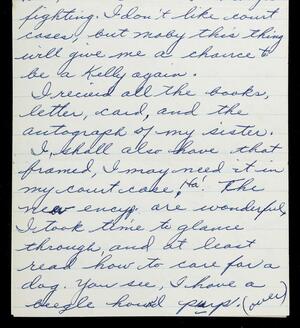 fighting. I don't like court
cases, but maby this thing
will give me a chance to
be a Kelly again.
I recived all the books,
letter, card, and the
autograph of my sister.
I, shall also have that
framed, I may need it in
my court case, Ha! The
new encyp. are wonderful,
I took time to glance
through, and at least
read how to care for a
dog. You see, I have a
beegle hound pup. (over)